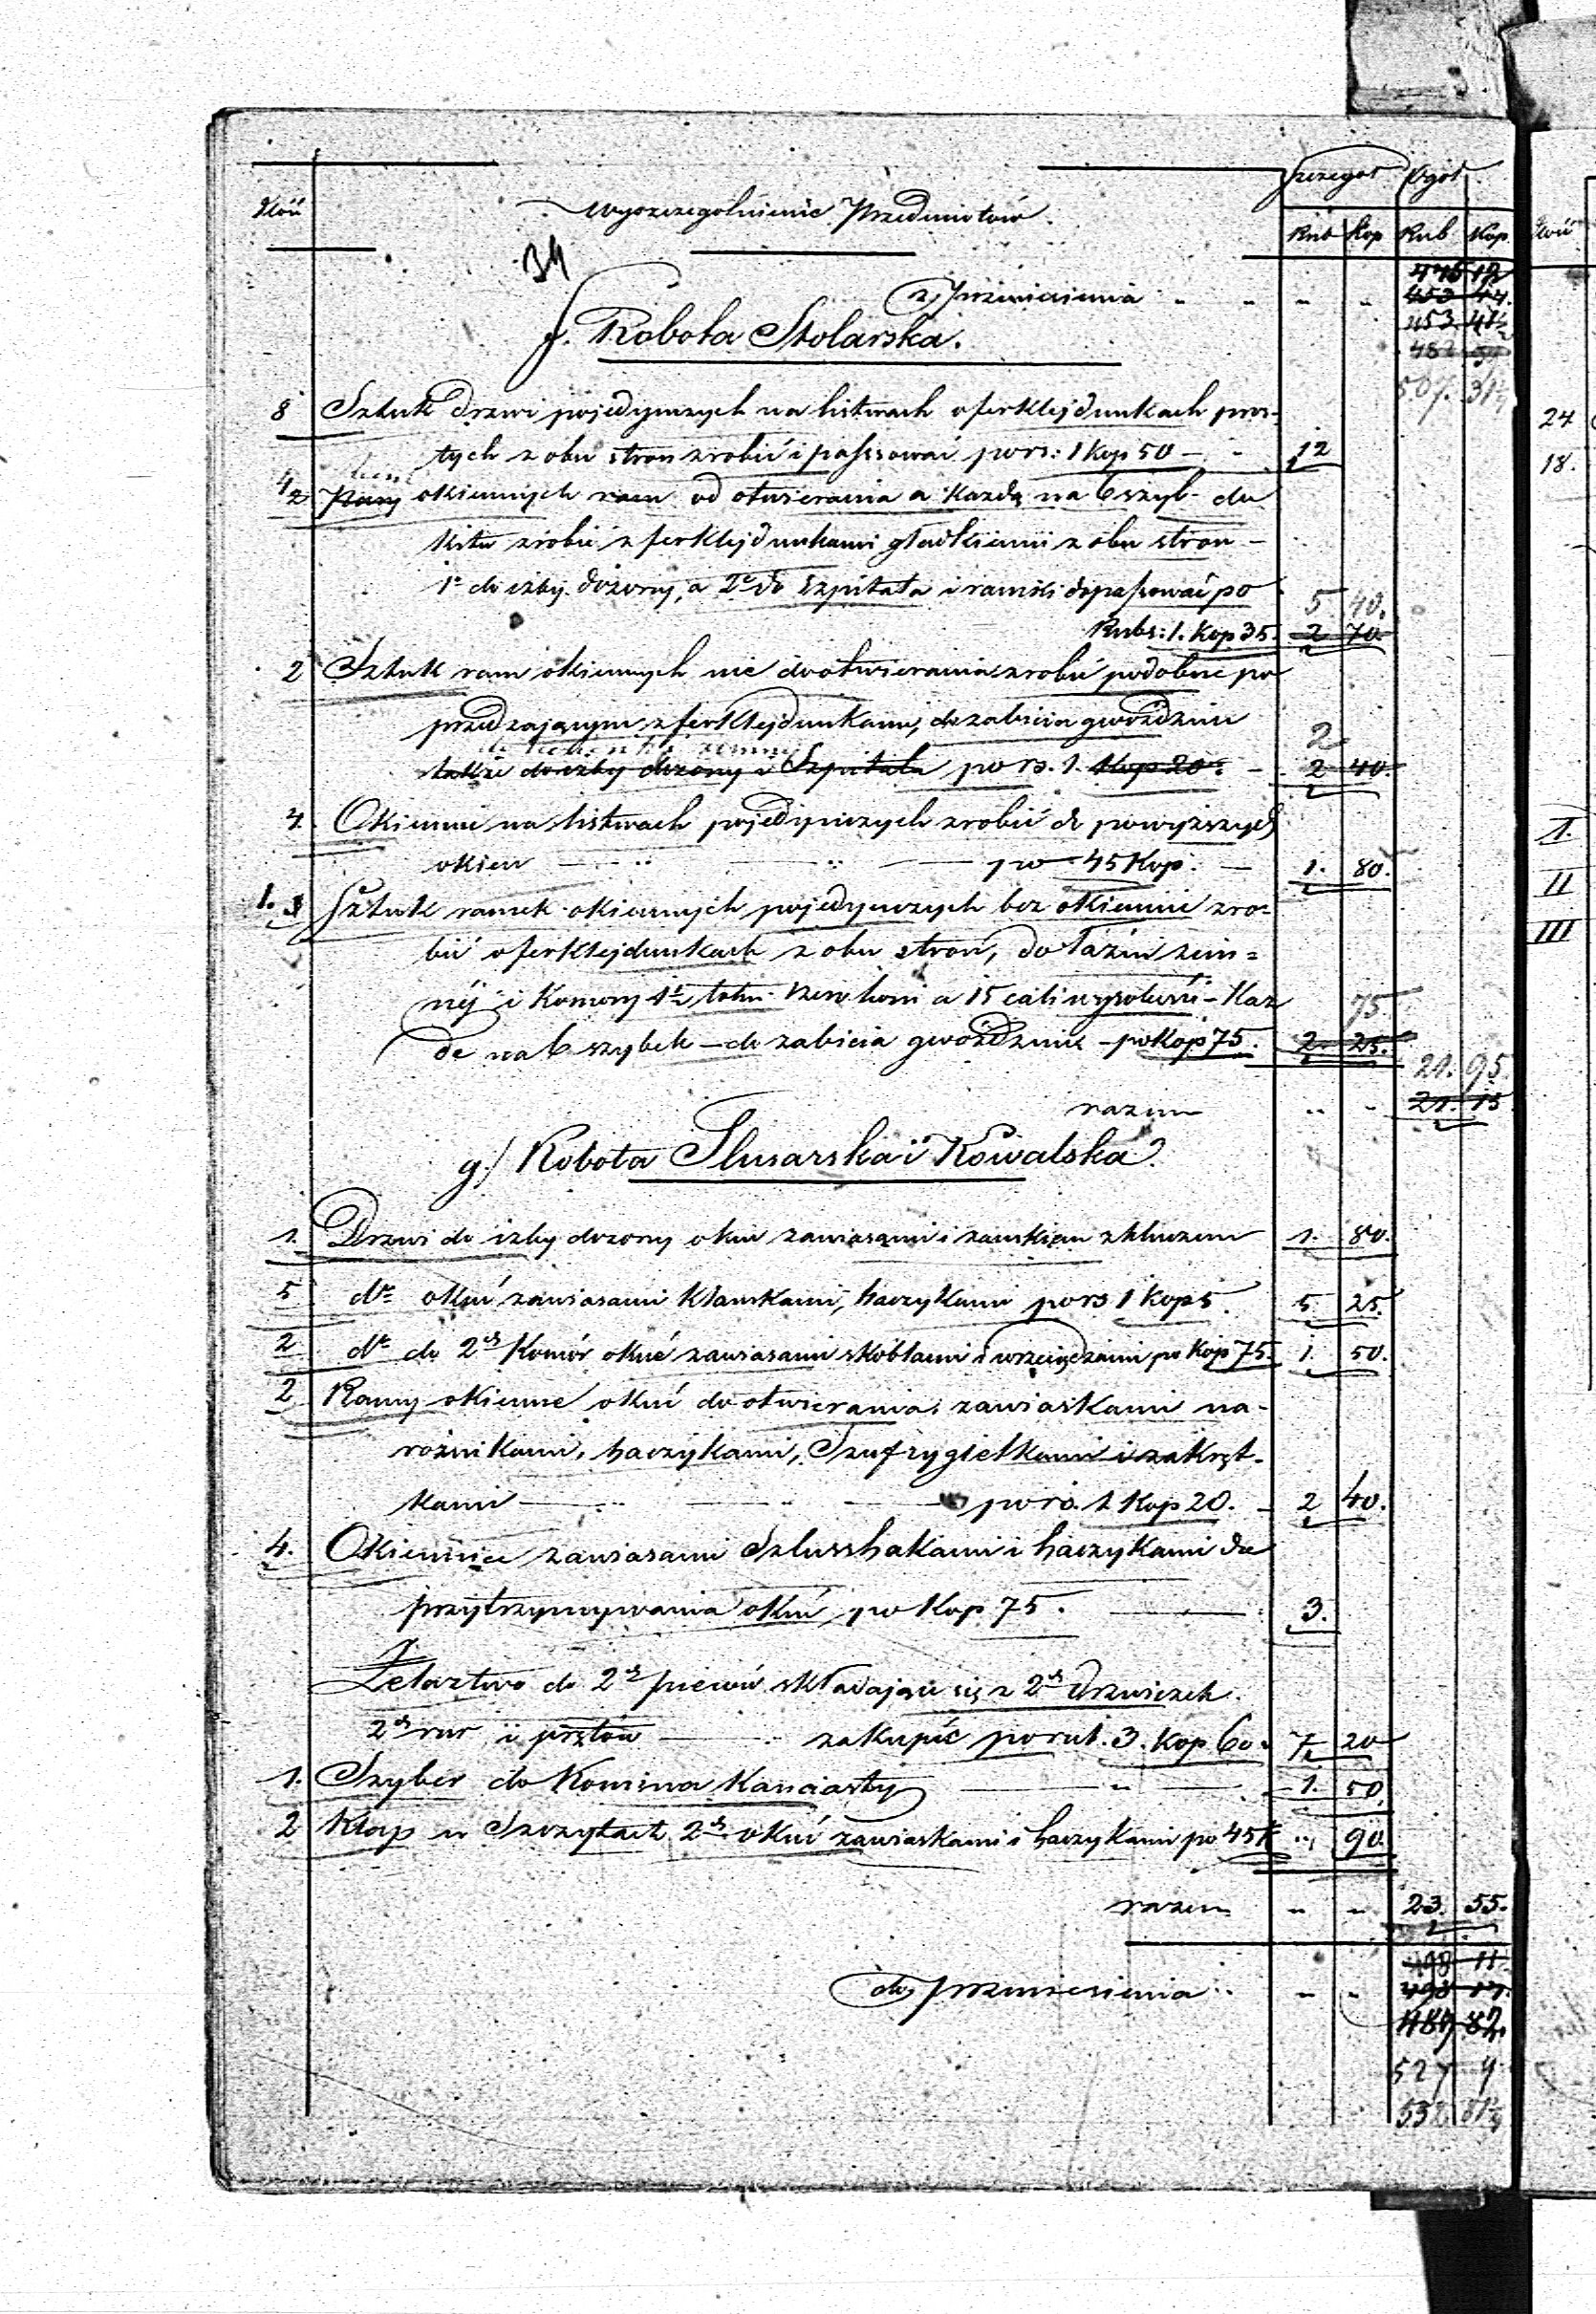 Szczegół Ogół
Ilość Wyszczególnienie Przedmiotów. Rub Kop Rub Kop
34
z przeniesienia 446 12
453 44.
453 41½
482
507. 31½
f. Robota Stolarska.
8 Sztuk drzwi pojedynczych na listwach o ferklejdunkach pros-
tych z obu stron zrobić i passować po rs: 1 Kop 50 – 12
4 2 Pary okiennych ram od otwierania a każdą na 6 szyb do
kitu zrobić z ferklejdunkami gładkiemi z obu stron –
1a do izby dozorcy, a 2a do Szpitala i ramki dopassować po 5 40.
Rubs: 1. Kop 35. 2 70.
2 Sztuk ram okiennych nie do otwierania zrobić podobne po
przedzającym z ferklejdunkami, do zabicia gwoździmi 2
także do izby dozorcy i Szpitala po rs. 1. Kop 20. – 2 40.
4. Okiennic na listwach pojedynczych zrobić do powyższych
okien — po 45 Kop. — 1. 80.
1. 3 Sztuk ramek okiennych pojedynczych bez okiennic zro-
bić o ferklejdunkach z obu stron, do łazni zim=
néj i Komory 1½ szerokości a 15 cali wysokości – Каż 75
de na 6 szybek – do zabicia gwoździmi – po Kop 75. 2. 25.
21. 95.
razem 21. 15
g./ Robota Slusarska i Kowalska.
1. Drzwi do izby dozorcy okuć zawiasami i zamkiem z kluczem 1. 80.
5 dto okuć zawiasami klamkami, haczykami po rs 1 Kop 5. 5. 25.
2 dto do 2ch Komór okuć zawiasami skoblami i wrzeciądzami po Kop 75. 1. 50.
2 Ramy okienne okuć do otwierania, zawiaskami na-
rożnikami, haczykami, Szufryglelkami i zakręt-
kami — po rs. 1 Kop 20. – 2 40.
4. Okiennice zawiasami Szlusshakami i haczykami do
przytrzymywania okuć po Kop 75. — 3.
Żelaztwo do 2ch pieców składające się z 2ch drzwiczek
2ch rur i prętów — zakupić po rub. 3. Kop 60. 7 20
1. Szyber do Komina Kanciasty — 1. 50
2 Klap w Szczytach 2ch okuć zawiaskami i haczykami po 45 K „ 90
razem 23. 55.
498 11
do przeniesienia 498 14.
489 82.
527 4
532 81½
24
18.
I.
II
III